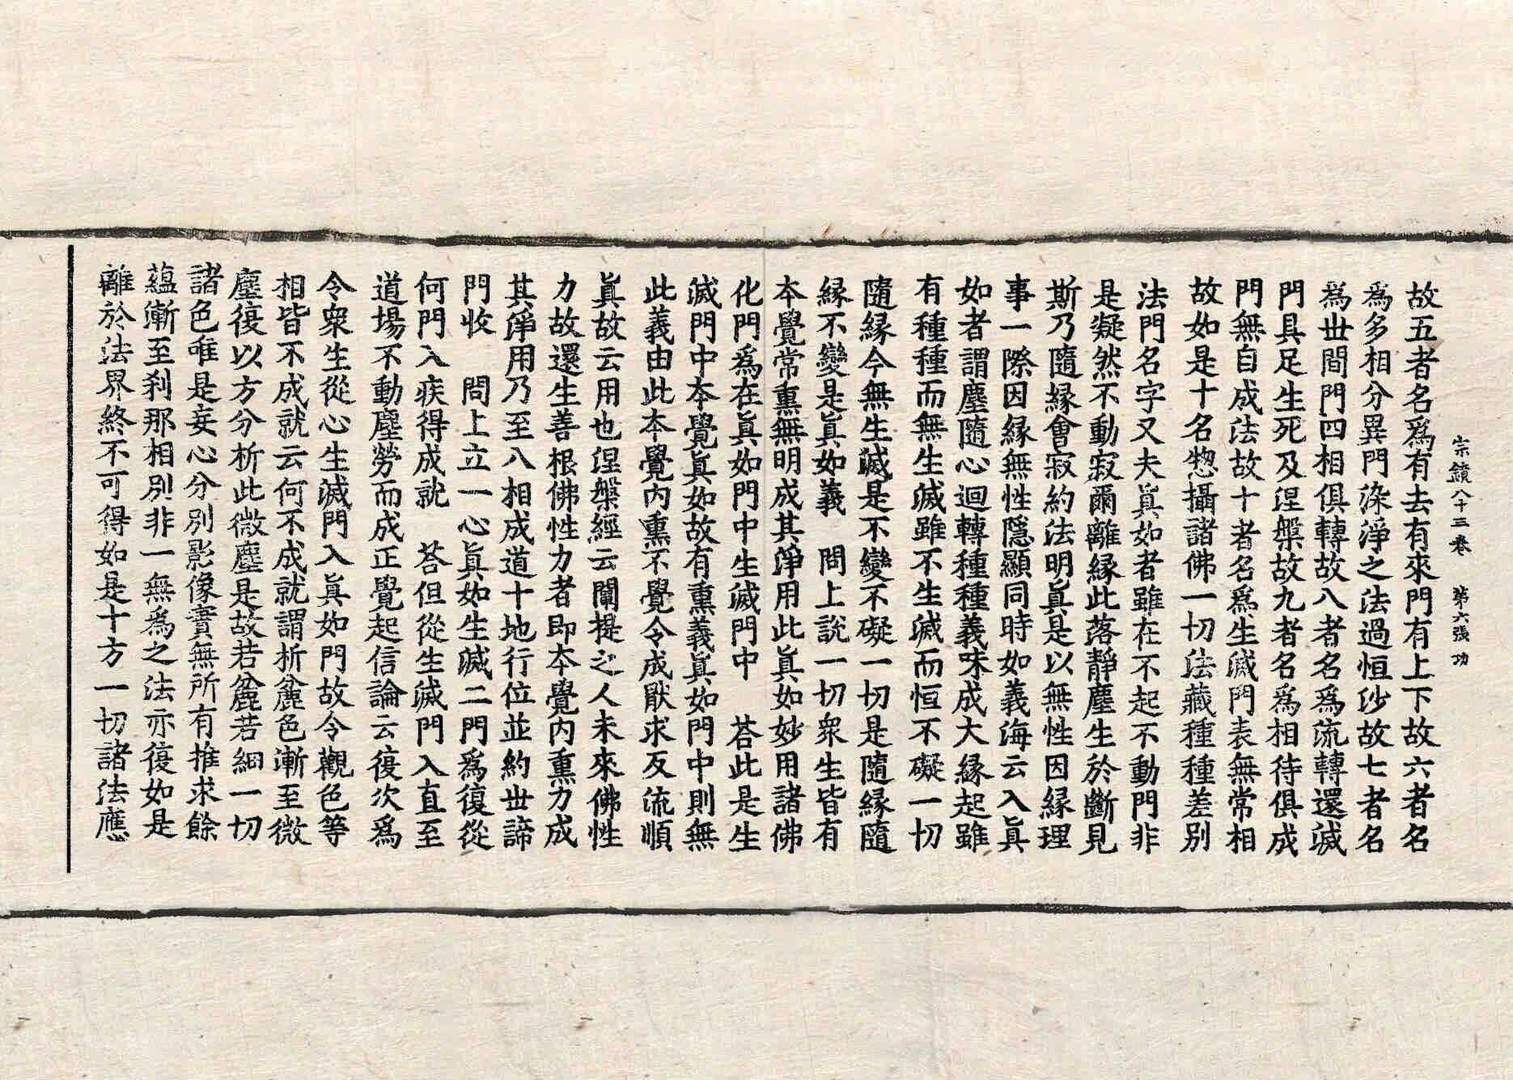 宗鏡八十三卷　第六張　功
故五者名爲有去有來門有上下故六者名
爲多相分異門染淨之法過恒沙故七者名
爲世間門四相俱轉故八者名爲流轉還滅
門具足生死及涅槃故九者名爲相待俱成
門無自成法故十者名爲生滅門表無常相
故如是十名惣攝諸佛一切法藏種種差別
法門名字又夫眞如者雖在不起不動門非
是凝然不動寂爾離緣此落靜塵生於斷見
斯乃隨緣會寂約法明眞是以無性因緣理
事一際因緣無性隱顯同時如義海云入眞
如者謂塵隨心迴轉種種義味成大緣起雖
有種種而無生滅雖不生滅而恒不礙一切
隨緣今無生滅是不變不礙一切是隨緣隨
緣不變是眞如義　問上說一切衆生皆有
本覺常熏無明成其淨用此眞如妙用諸佛
化門爲在眞如門中生滅門中　荅此是生
滅門中本覺眞如故有熏義眞如門中則無
此義由此本覺內熏不覺令成猒求反流順
眞故云用也涅槃經云闡提之人未來佛性
力故還生善根佛性力者即本覺內熏力成
其淨用乃至八相成道十地行位並約世諦
門收　問上立一心眞如生滅二門爲復從
何門入疾得成就　荅但從生滅門入直至
道場不動塵勞而成正覺起信論云復次爲
令衆生從心生滅門入眞如門故令觀色等
相皆不成就云何不成就謂折麁色漸至微
塵復以方分析此微塵是故若麁若細一切
諸色唯是妄心分別影像實無所有推求餘
蘊漸至刹那相別非一無爲之法亦復如是
離於法界終不可得如是十方一切諸法應